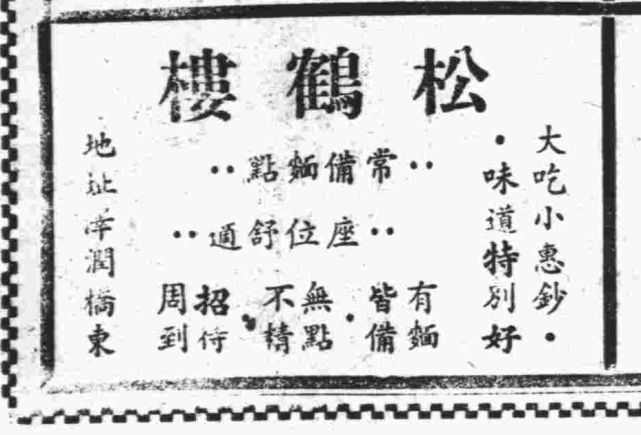 松鶴樓
大吃小惠鈔・
・味道特別好
‥常備麵點‥
‥座位舒適‥
有麵
皆備・
無點
不精・
招待
周到
地址潤橋東